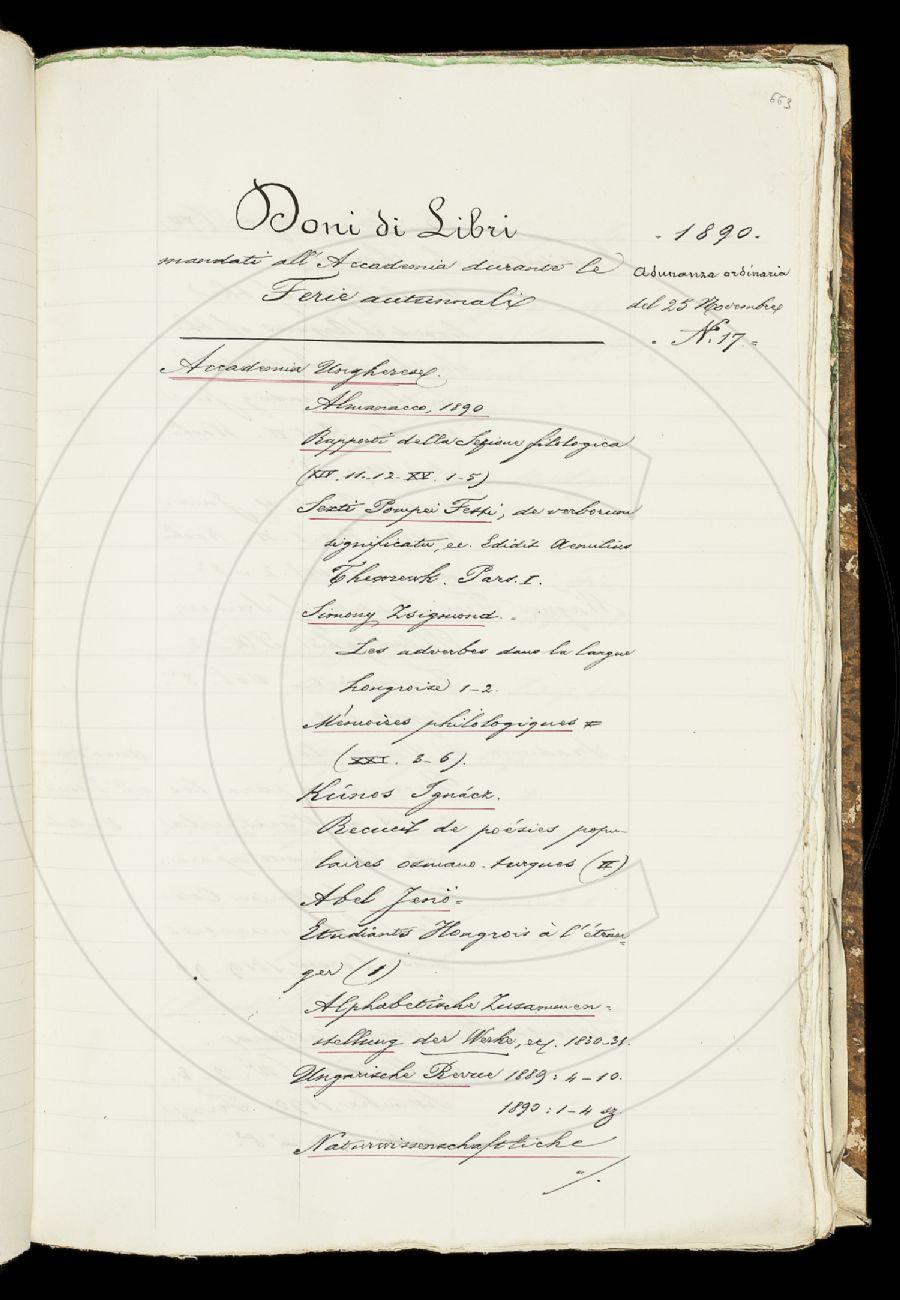 663
Doni di Libri
mandati all'Accademia durante le
Ferie autunnali
- 1890 -
Adunanza ordinaria
del 25 Novembre
- N. 17 -
Accademia Ungherese.
Almanacco, 1890
Rapporti della Sezione filologica
(XIV. 11-12. XV. 1-5)
Sexti Pompei Festi, de verborum
significatu, ec. Edidit Aemilius
Thewrewk. Pars. I.
Simony Zsigmond.
Les adverbes dans la langue
hongroise 1-2.
Mémoires philologiques
(XXI. 3-6).
Kúnos Ignácz.
Recueil de poésies popu-
laires osmano-turques (II)
Abel Jenö=
Etudiants Hongrois à l'étran=
ger (1)
Alphabetische Zusammen-
stellung der Werke, ec. 1830-31.
Ungarische Revue 1889: 4-10.
1890: 1-4
Naturwissenschaftliche
"/.